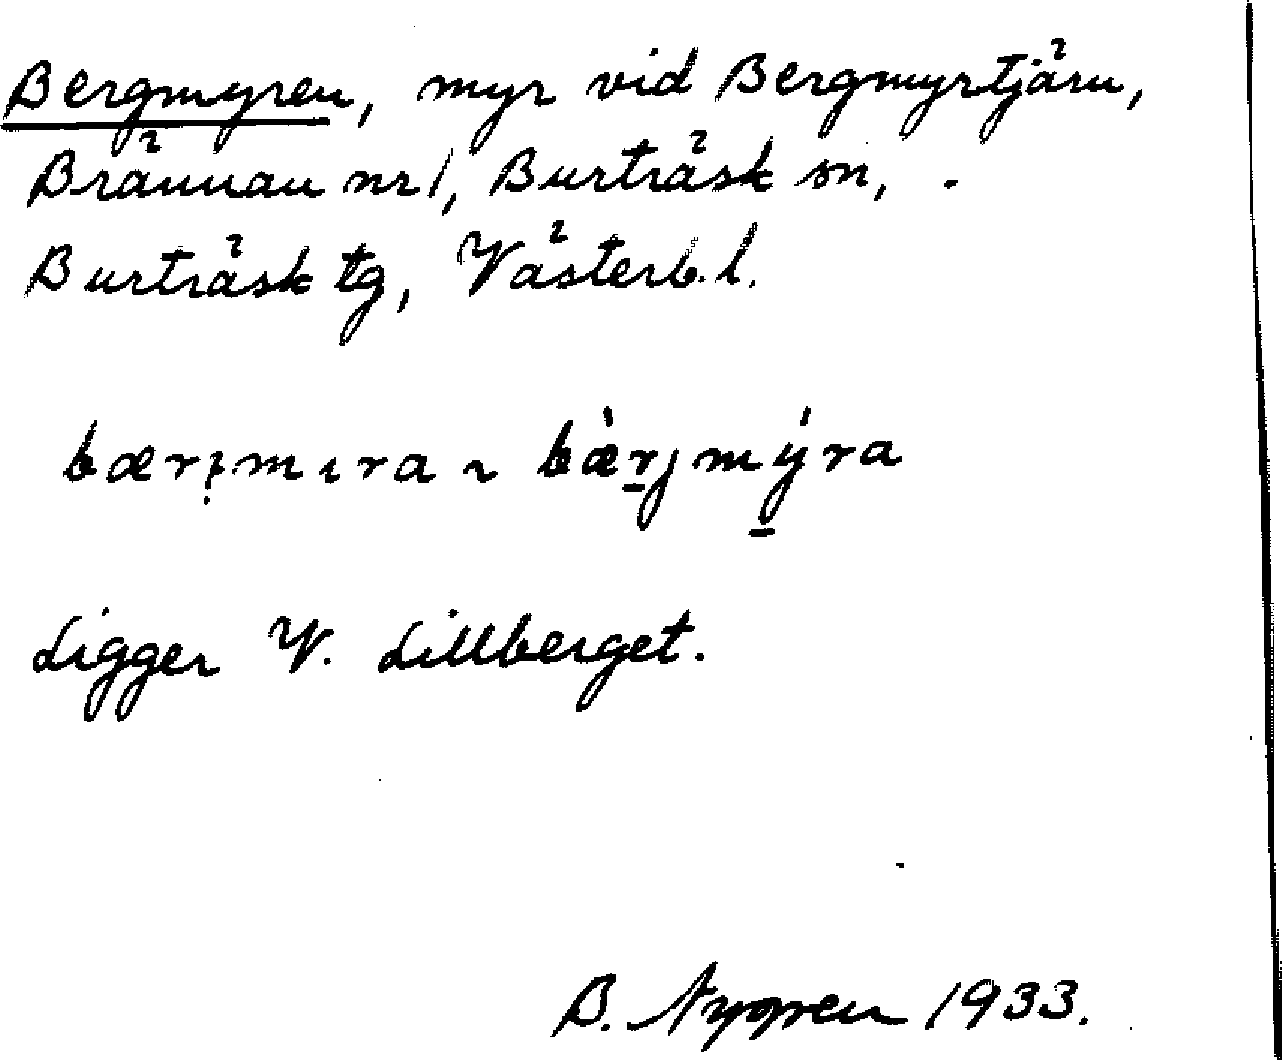 Bergmyren, myr vid Bergmyrtjärn,
Brännan nr 1, Burträsk sn,
Burträsk tg, Västerb. l.
bærjmıra ~ bæ̀rjmýra
Ligger V. Lillberget.
B. Nygren 1933.